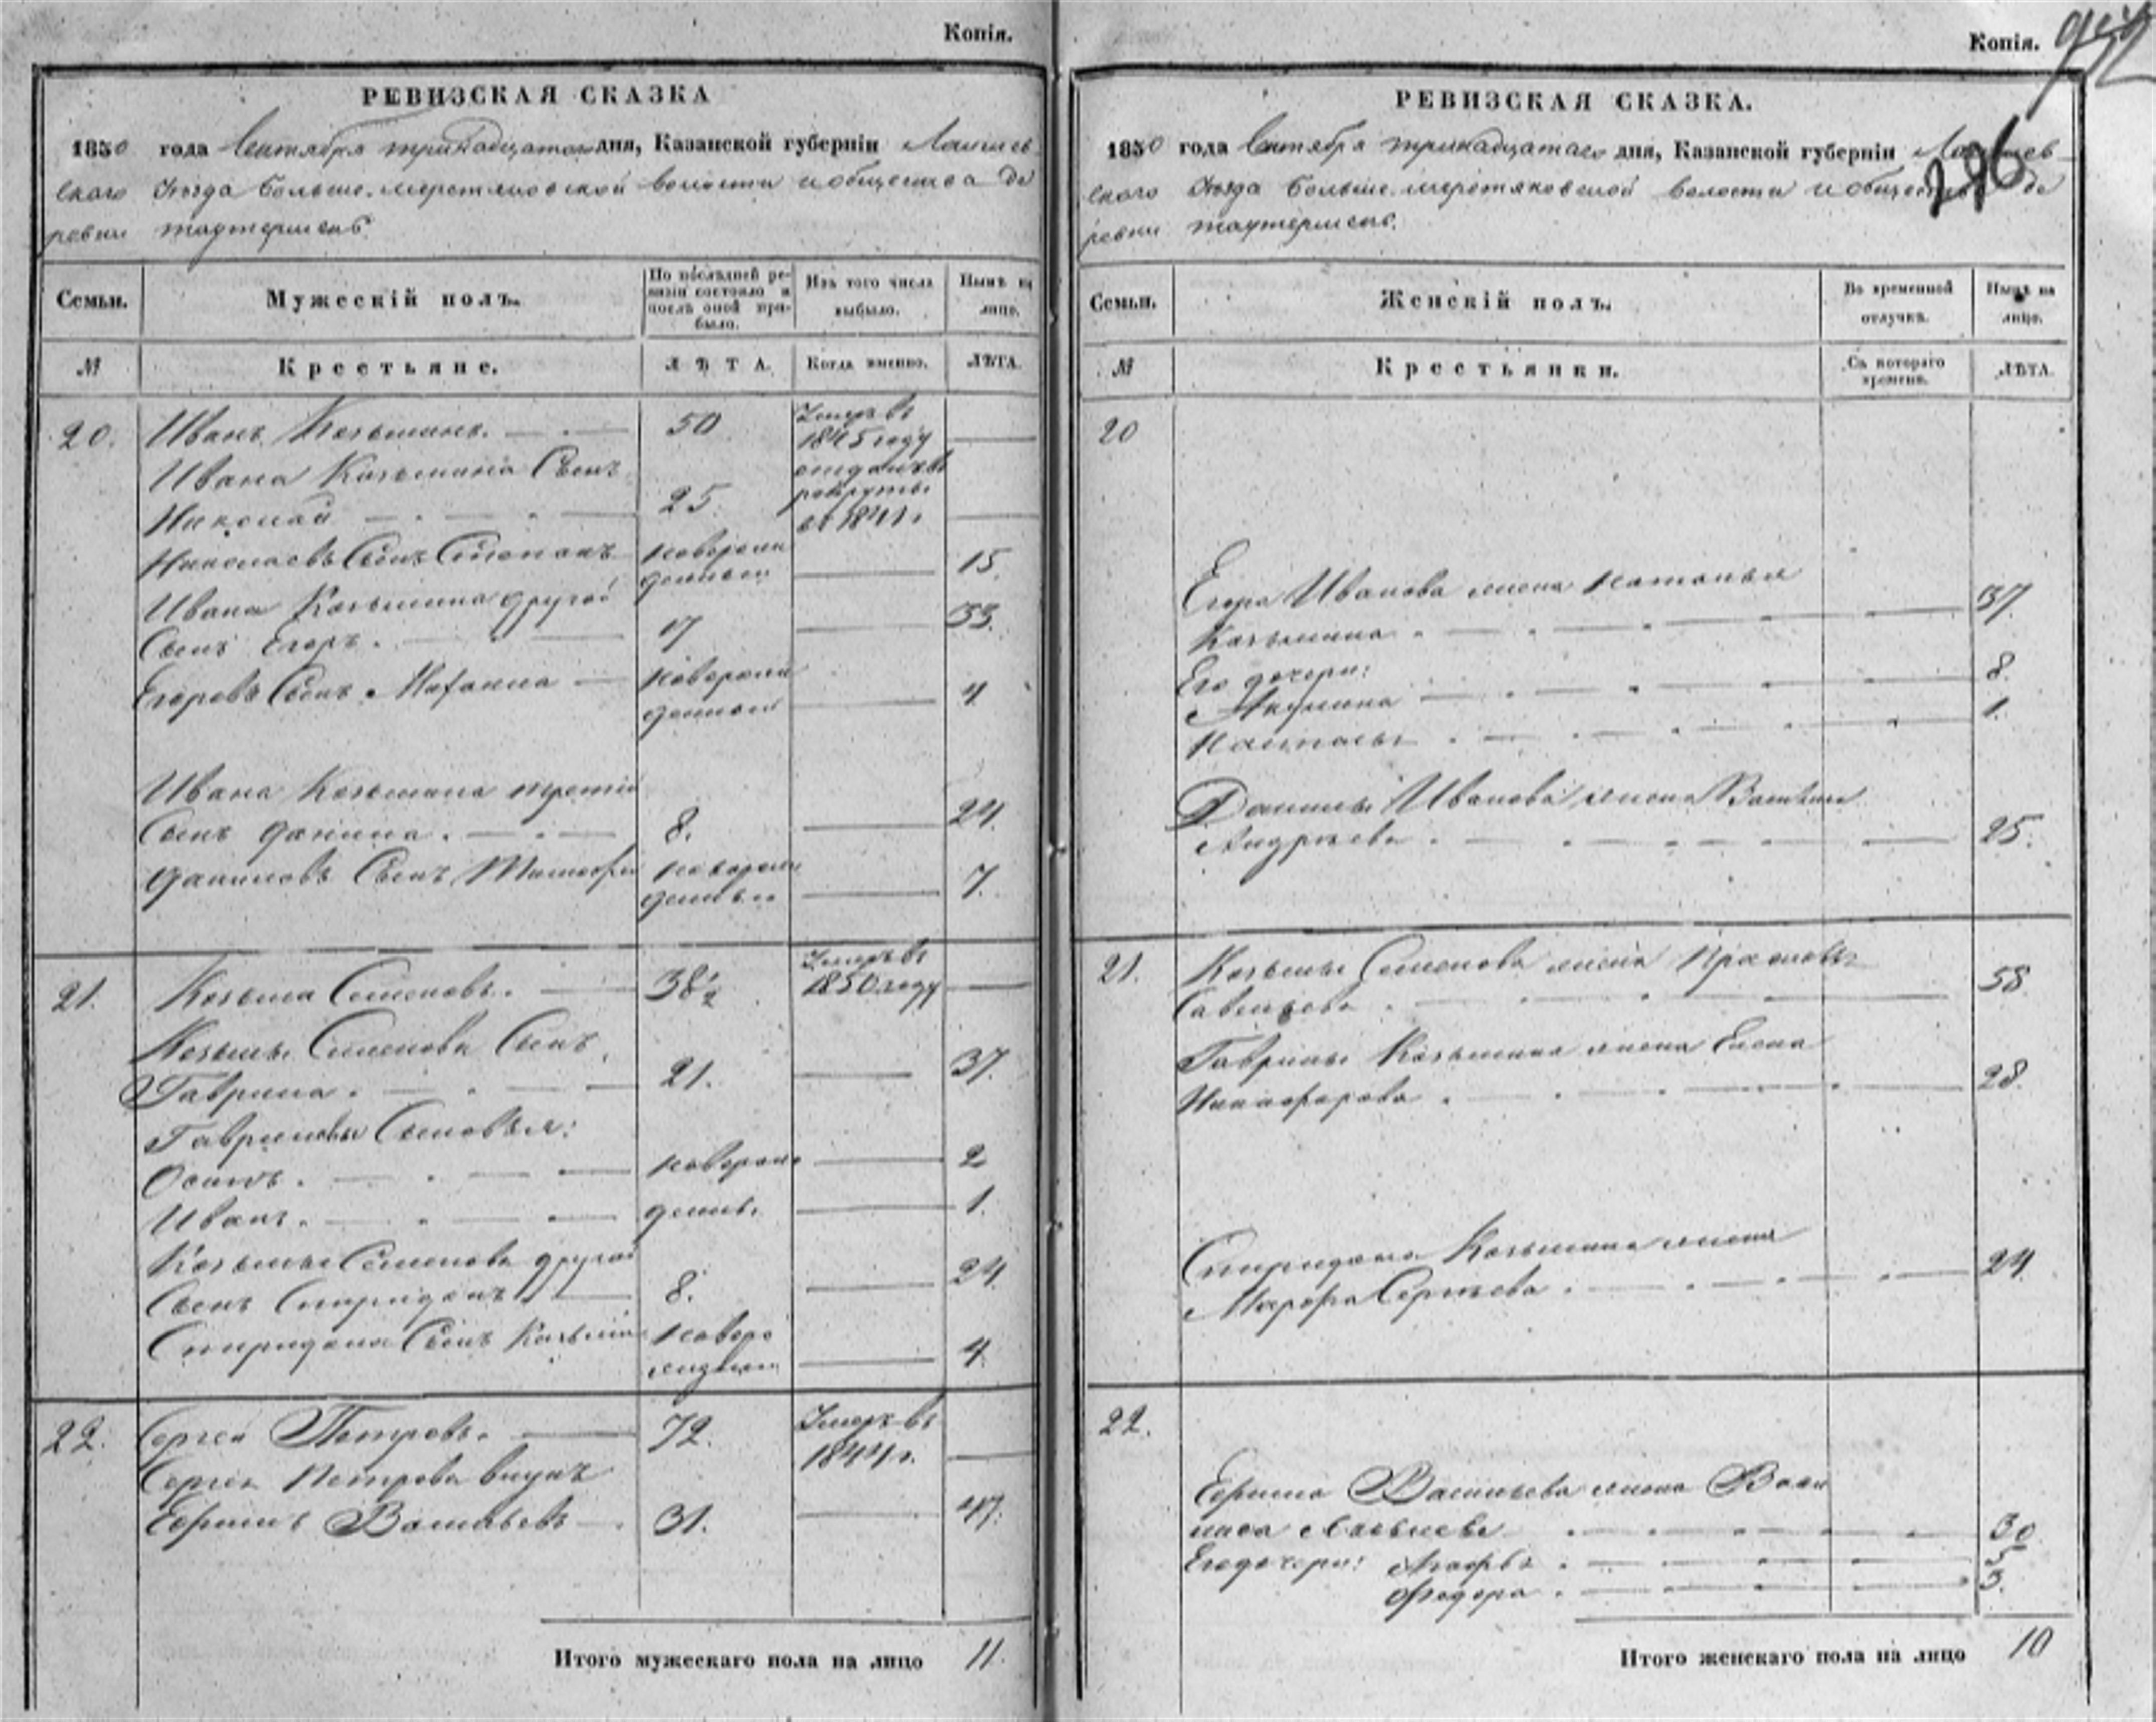 Копія.
РЕВИЗСКАЯ СКАЗКА
1850 года Сентября тринадцатого дня, Казанской губерніи Лаишев-
скаго Уѣзда Больше-меретяковской волости и общества де
ревни таутермень
Семьи.
Мужескій полъ.
По послѣдней ре-
визіи состояло и
послѣ оной при-
было.
Изъ того числа
выбыло.
Нынѣ на
лицо.
№
Крестьяне.
ЛѢТА.
Когда именно.
ЛѢТА.
20. Иванъ Козьминъ. 50 Умеръ въ
1845 году
Ивана Козьмина Сынъ отданъ въ
Николай 25. рекруты
въ 1841 г.
Николаевъ Сынъ Степанъ новорож
денный 15.
Ивана Козьмина другой
Сынъ Егоръ. 17 33.
Егоровъ Сынъ новорож
денный 4
Ивана Козьмина третій
Сынъ Данила. 8. 24.
Даниловъ Сынъ Тимофей новорож
денный 7.
21. Козьма Семеновъ. 38½ Умеръ въ
1850 году
Козьмы Семенова Сынъ
Гаврила. 21. 37.
Гавриловы Сыновья:
Осипъ. новорож 2
Иванъ. денны. 1.
Козьмы Семенова другой
Сынъ Спиридонъ. 8. 24.
Спиридона Сынъ Козьма новоро
жденный 4
22. Сергей Петровъ. 72. Умеръ въ
1844 г.
Сергея Петрова внукъ
Ефимъ Васильевъ 31. 47.
Итого мужескаго пола на лицо 11.
Копія.
296
РЕВИЗСКАЯ СКАЗКА.
1850 года Сентября тринадцатаго дня, Казанской губерніи Лаишев-
скаго Уѣзда Больше-меретяковской волости и общества де
ревни таутермень.
Семьи.
Женскій полъ.
Во временной
отлучкѣ.
Нынѣ на
лицо.
№
Крестьянки.
Съ котораго
времени.
ЛѢТА.
20
Егора Иванова жена Наталья
Козьмина. 37.
Его дочери:
Акулина 8.
Наталья. 1.
Данилы Иванова жена
Андреева. 25.
21. Козьмы Семенова жена Прасковья
Савельева 58
Гаврилы Козьмина жена Елена
Никифорова. 28.
Спиридона Козьмина жена
Марфа Сергѣева. 24.
22.
Ефима Васильева жена Васи
лиса 30
Его дочери:
Федора. 3.
Итого женскаго пола на лицо 10